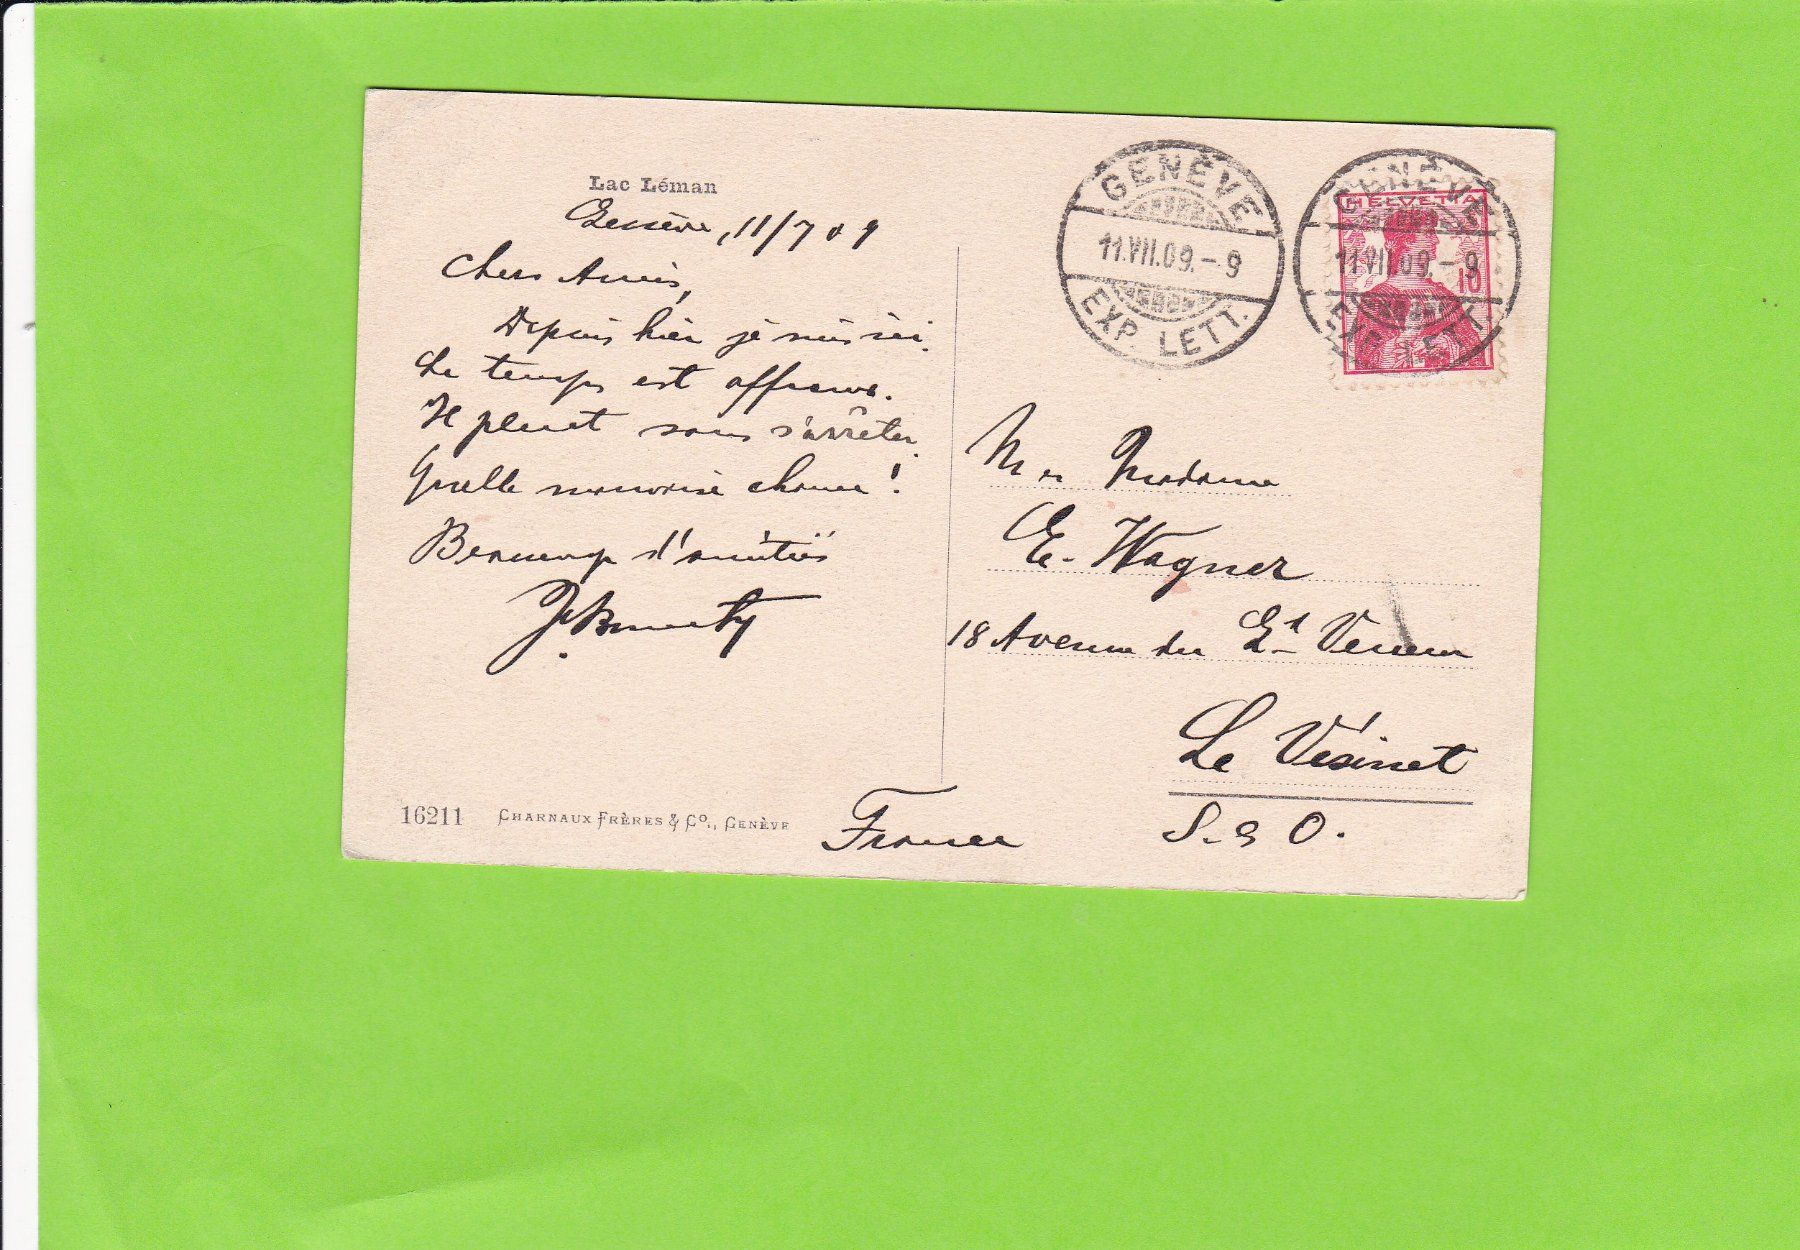 Lac Léman
Genève, 11/7 09
Chers Amis,
Depuis hier je suis ici.
Le temps est affreux.
Il pleut sans s'arrêter.
Quelle mauvaise chance!
Beaucoup d'amitiés
16211 CHARNAUX FRÈRES & Co., GENÈVE
GENÈVE
11.VII.09.-9
EXP. LETT.
GENÈVE
11.VII.09.-9
EXP. LETT.
HELVETIA
10
M et Madame
E. Wagner
18 Avenue du
Le Vésinet
S. & O.
France